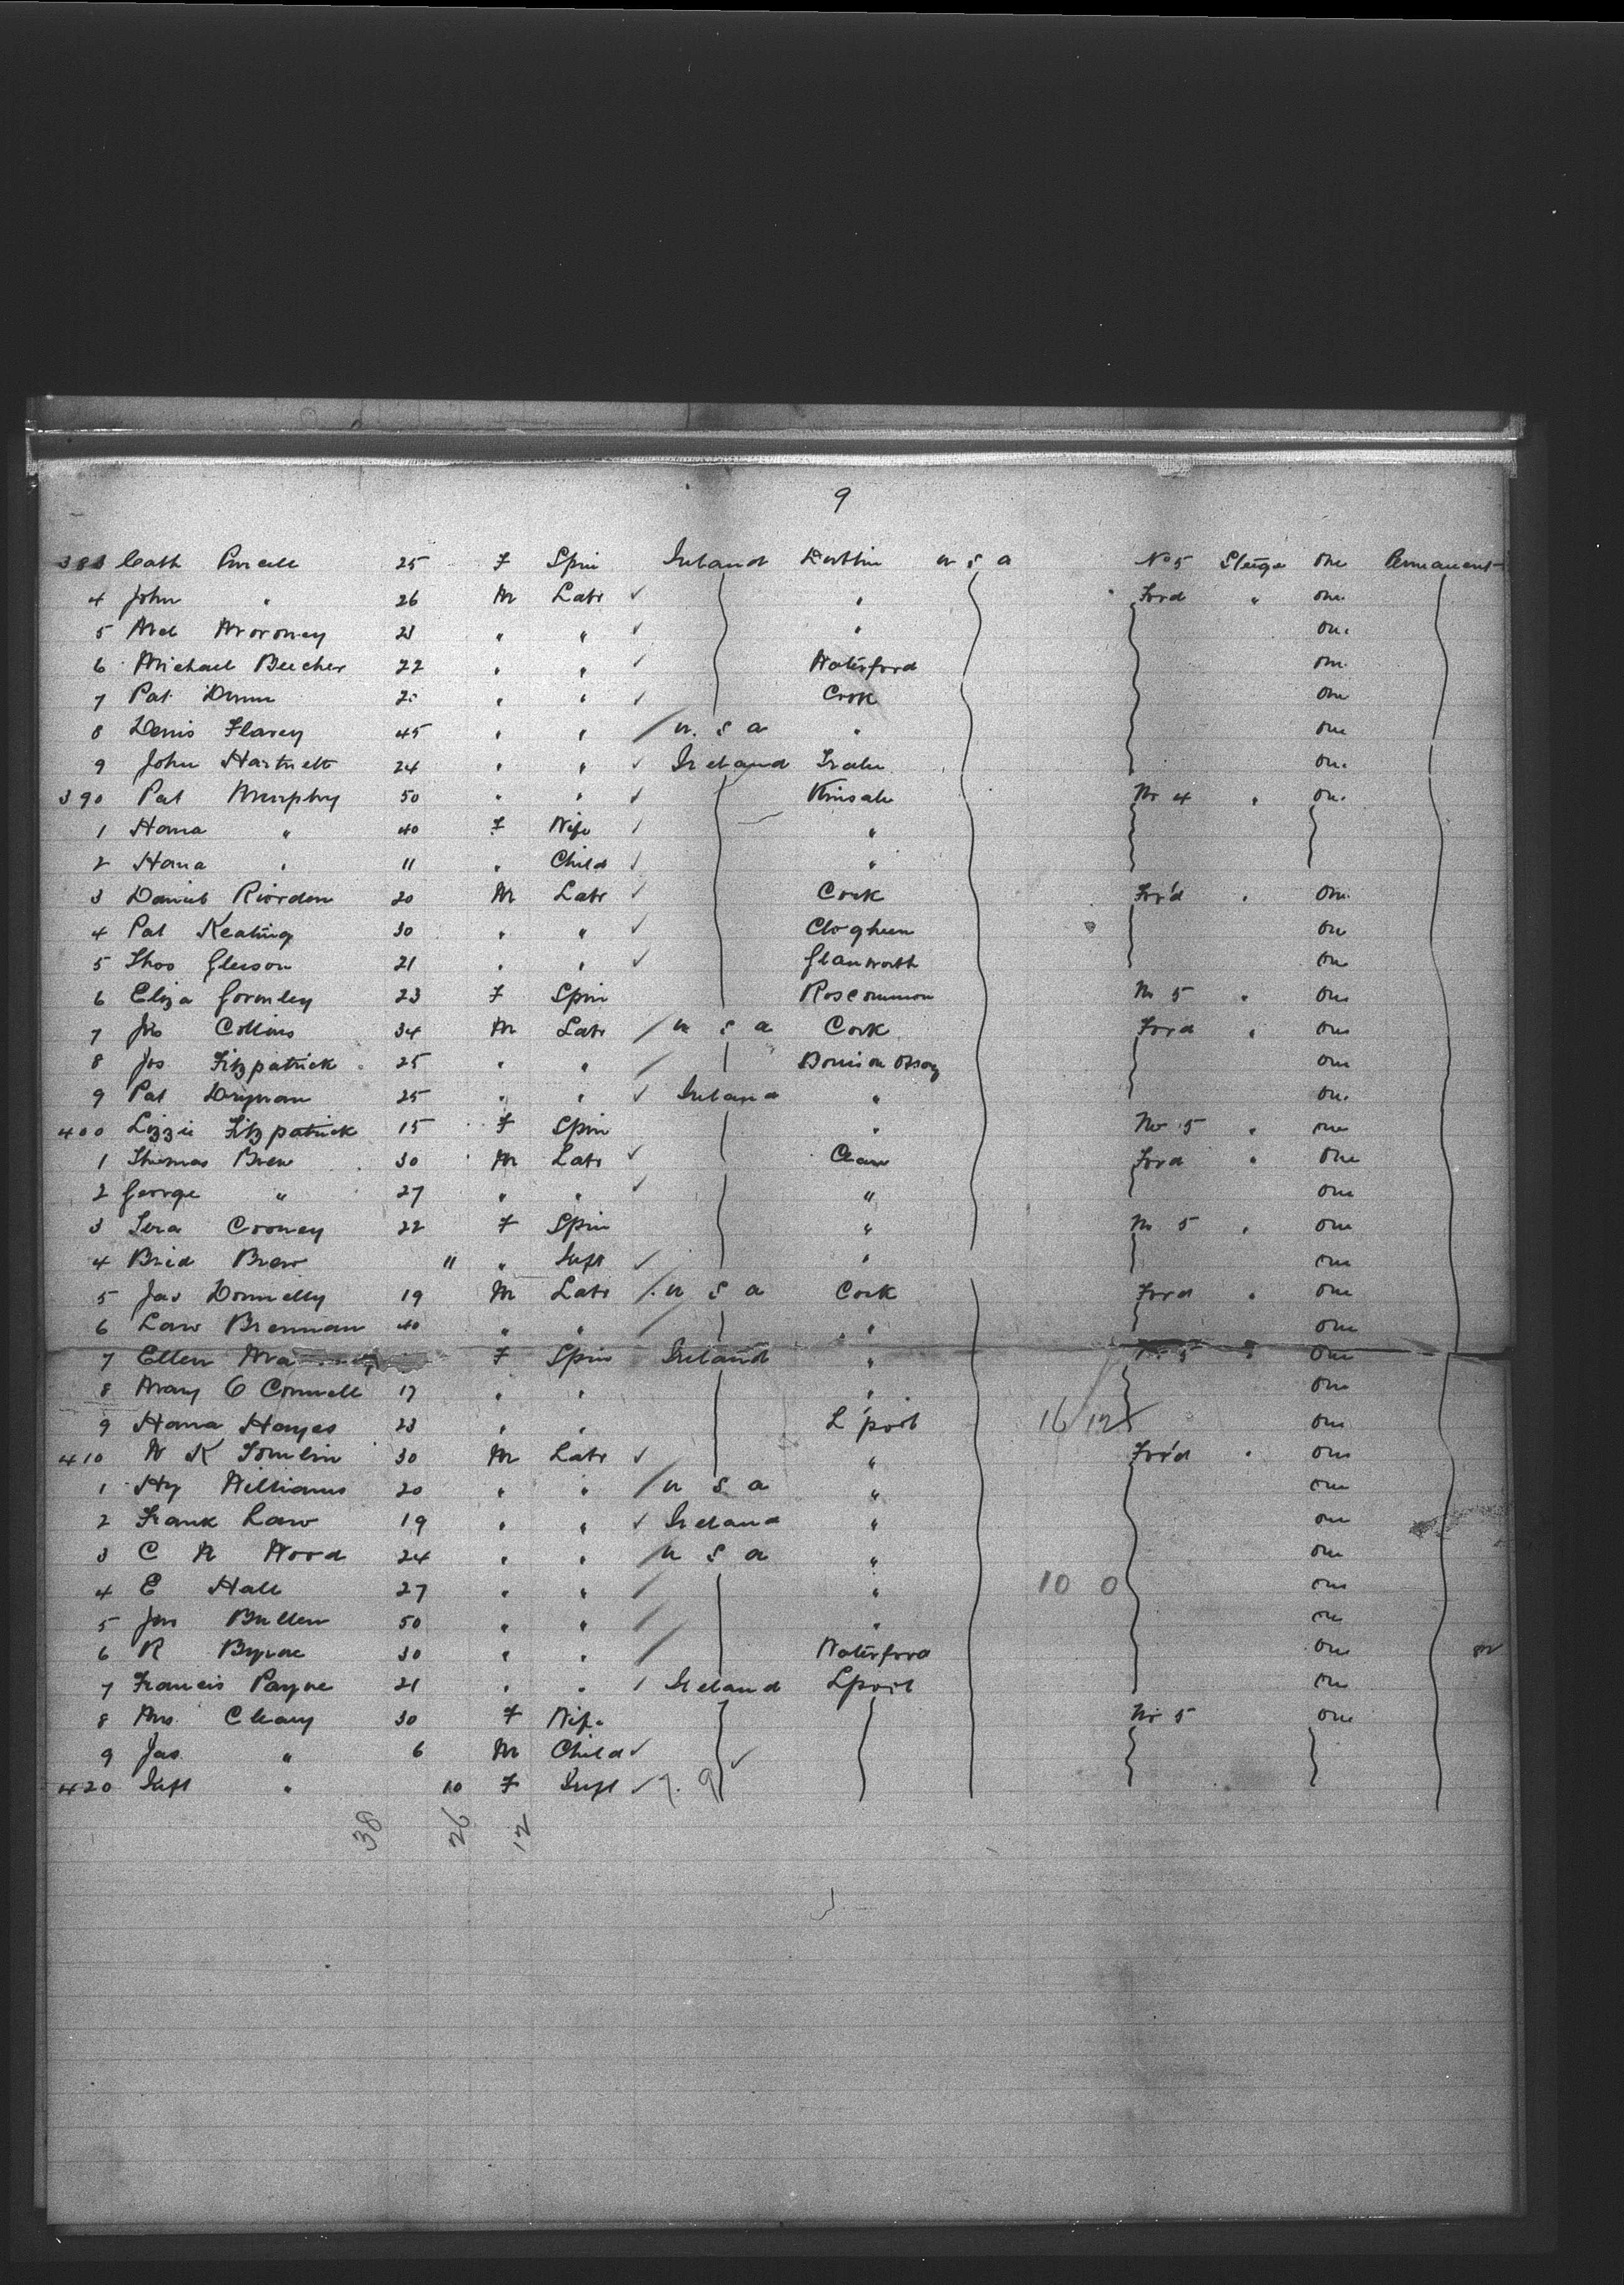 9
383 Cath Purcell 25 F Spin Ireland Dublin U S A No 5 Steige One Permanent
4 John " 26 M Labr ✓ " Ford " One
5 Mch Moroney 23 " " ✓ " One
6 Michael Beecher 22 " " ✓ Waterford One
7 Pat Dunn " " ✓ Cork One
8 Denis 45 " " / U. S A " One
9 John Hartnett 24 " " ✓ Ireland Tralee One
390 Pat Murphy 50 " " ✓ Kinsale No 4 " One
1 Hana " 40 F Wife ✓ "
2 Hana " 11 " Child ✓ "
3 Daniel Riordon 20 M Labr ✓ Cork For'd " One
4 Pat Keating 30 " " ✓ Clogheen One
5 Thos Gleeson 21 " " ✓ Glanworth One
6 Eliza Gormley 23 F Spin Roscommon No 5 " One
7 Jas Collins 34 M Labr / U S A Cork Ford " One
8 Jos Fitzpatrick 25 " " / One
9 Pat 25 " " ✓ Ireland " One
400 Lizzie Fitzpatrick 15 F Spin " No 5 " One
1 Thomas Brew 30 M Labr ✓ Clare Ford " One
2 George " 27 " " ✓ " One
3 Cooney 22 F Spin " No 5 " One
4 Brid Brew 11 " Inft ✓ " One
5 Jas Donnelly 19 M Labr / U S A Cork Ford " One
6 Law Brennan 40 " " / " One
7 Ellen F Spin Ireland " No 5 " One
8 Mary O Connell 17 " " " One
9 Hana Hayes 23 " " L'pool 16/12 One
410 W K Tomlin 30 M Labr ✓ " For'd " One
1 Hy Williams 20 " " / U S A " One
2 Frank Law 19 " " ✓ Ireland " One
3 C W Wood 24 " " / U S A " One
4 E Hall 27 " " / " 10 0 One
5 Jas Bullen 50 " " / " One
6 R Byrne 30 " " / Waterford One
7 Francis Payne 21 " " ✓ Ireland Lpool One
8 Mrs Cleary 30 F Wife No 5 One
9 Jas " 6 M Child ✓ ✓
420 Inft " 10 F Inft ✓ 7. 9
38 26 12